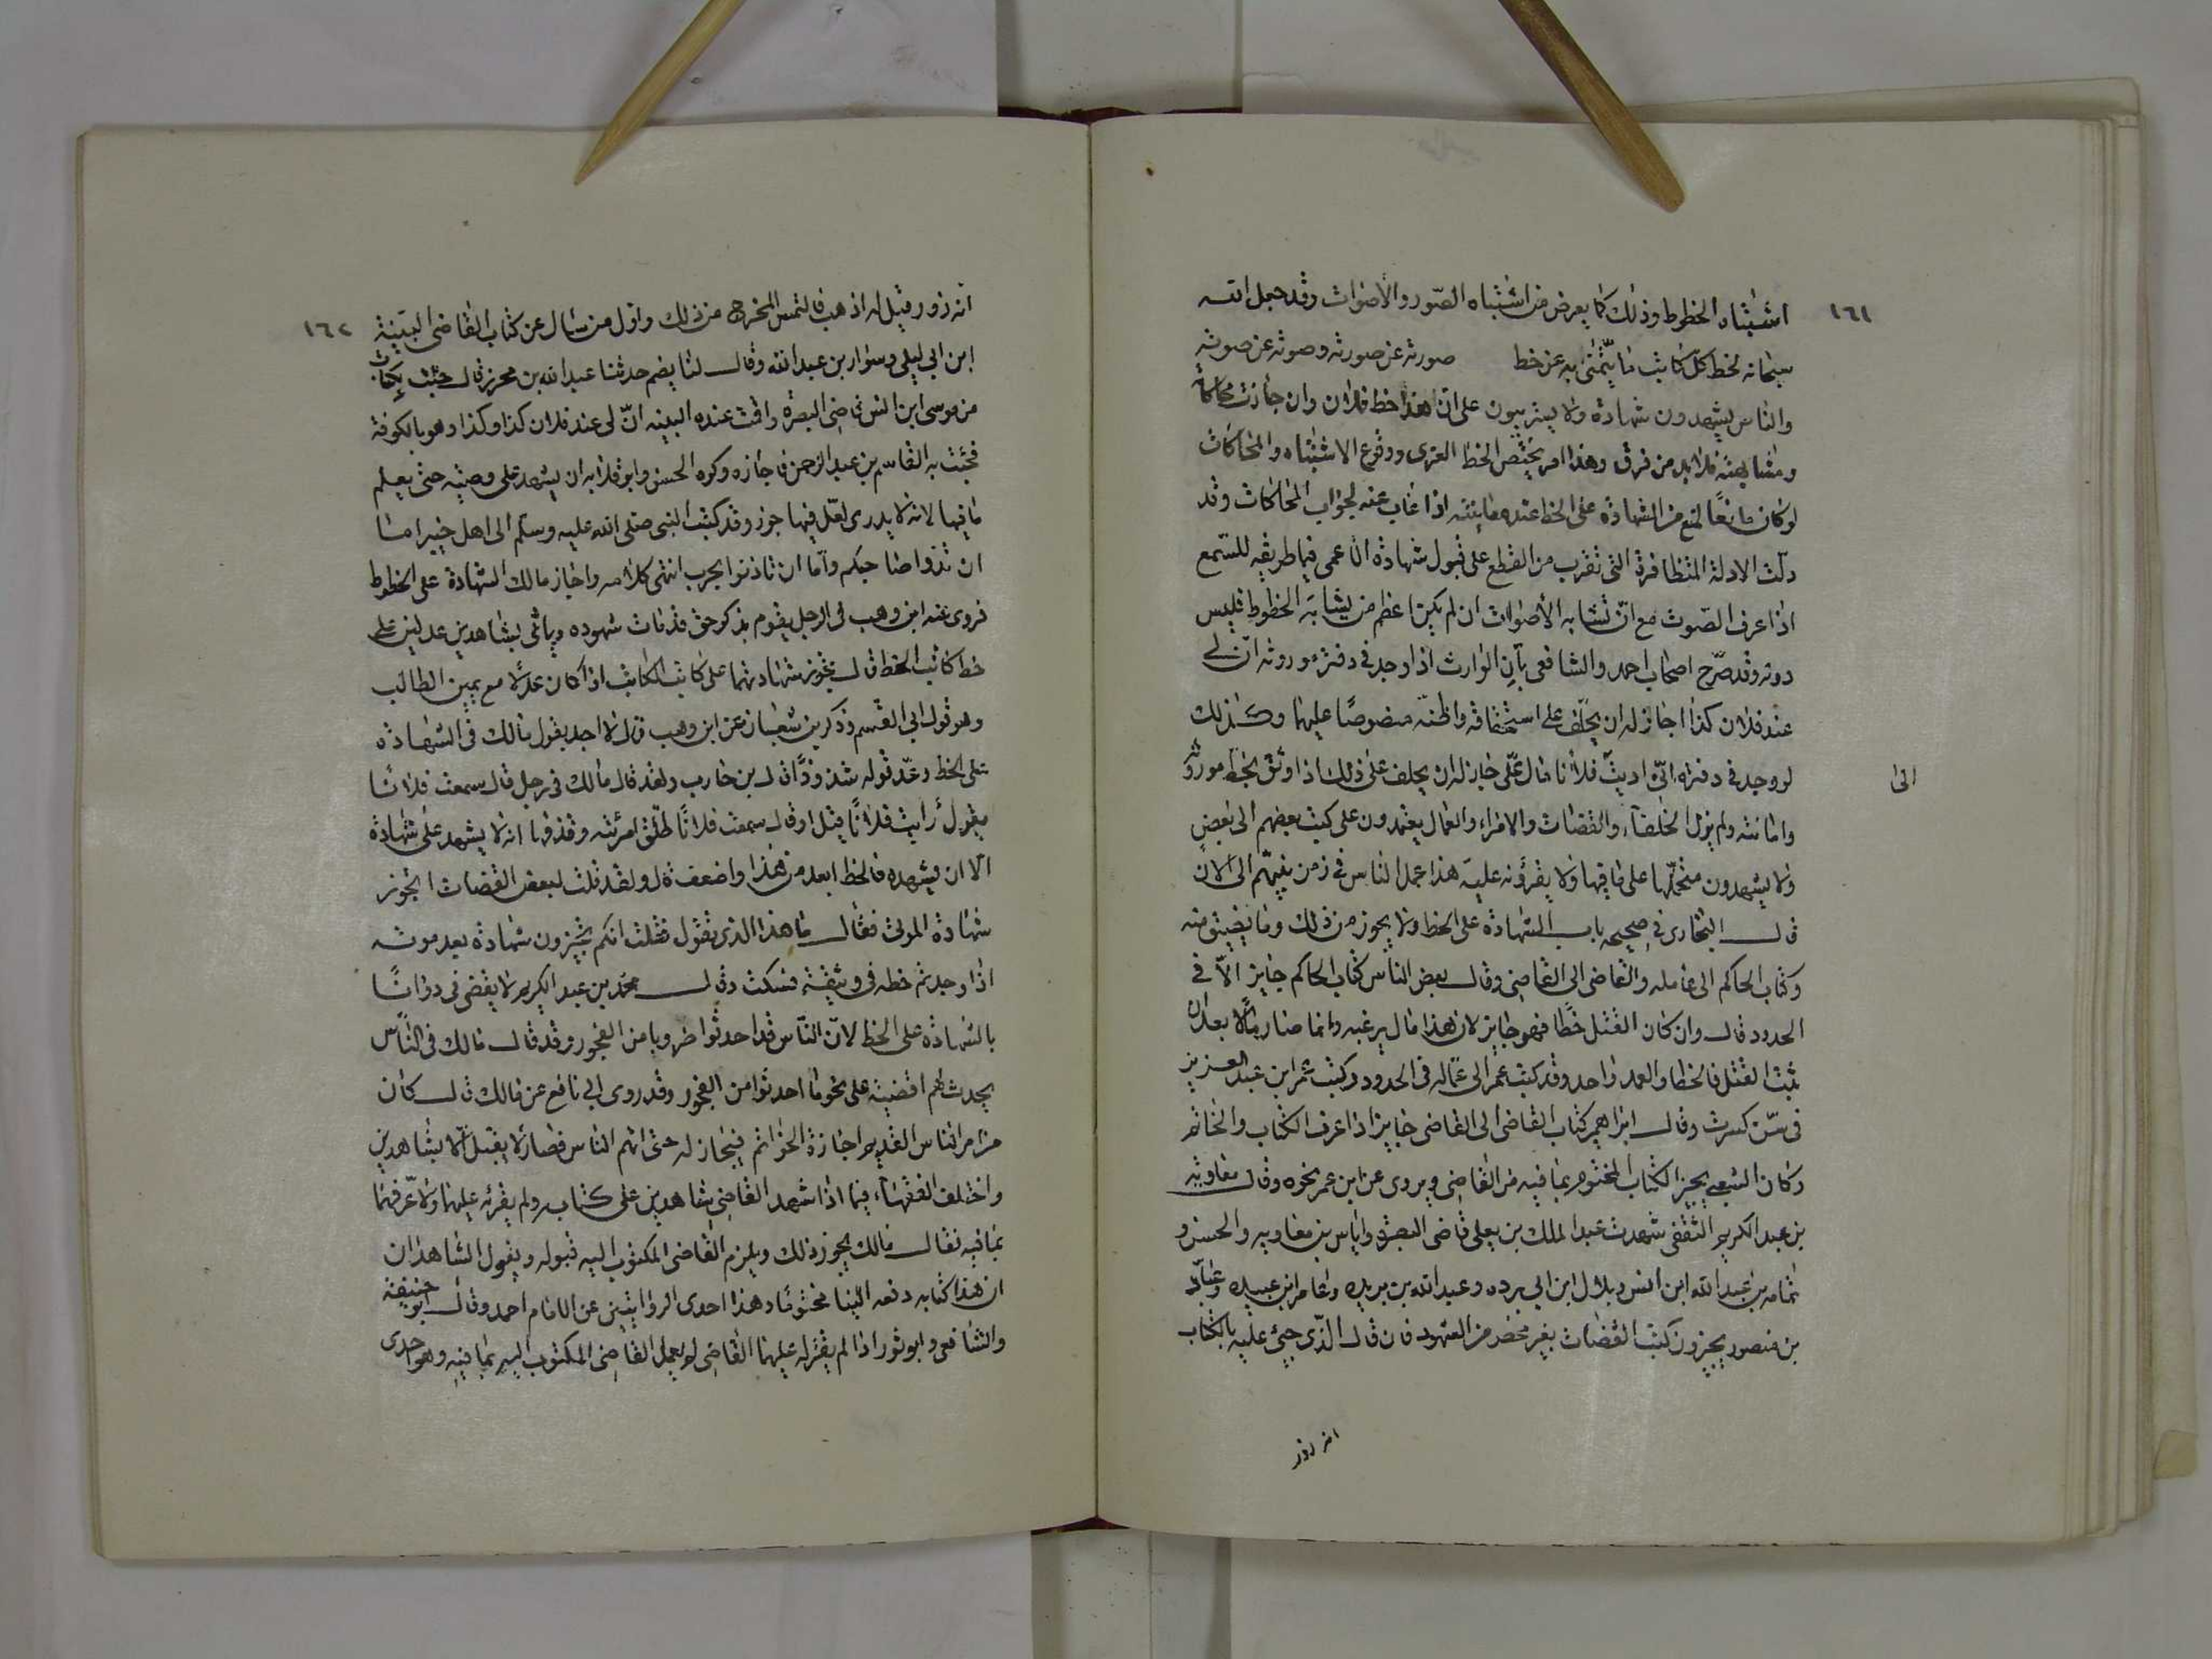 ١٦١
اشتباه الخطوط وذلك كما يعرض من اشتباه الصّور والأصوات وقد جعل الله
سبحانه لخط كلّ كاتب ما يتميّز به عن خط صورته عن صورته وصوته عن صوته
والناس يشهدون شهادة ولا يستريبون على انّ هذا خط فلان وان جازت محاكاة
ومشابهته فلا بد من فرق وهذا امر يختص الخط العربى ووقوع الاشتباه والمحاكات
لو كان مانعًا لمنع من الشهادة على الخط عند معاينته اذا غاب عنه لجواب المحاكات وقد
دلّت الادلة المتظافرة التى تقرب من القطع على قبول شهادة الاعمى فيما طريقه للسّمع
اذا عرف الصّوت مع انّ تشابه الأصوات ان لم يكن اعظم من يشابه الخطوط فليس
دونه وقد صرّح اصحاب احمد والشافعى بأن الوارث اذا وجد فى دفتر موروثه انّ لى
عند فلان كذا جاز له ان يحلف على استحقاقه واظنّه منصوصًا عليهما وكذلك
لو وجد فى دفتراه انّى اديت فلانا ما له علّى جاز له ان يحلف على ذلك اذا وثق بخط مورثه
الى
وامانته ولم يزل الخلفآء والقضات والامراء والعمال يعتمدون على كتب بعضهم الى بعض
ولا يشهدون متحمّلها على ما فيها ولا يقرؤنه عليه هذا عمل الناس فى زمن نبيّهم الى الآن
قال البخارى فى صحيحه باب الشهادة على الخط ولا يجوز من ذلك وما يضيق منه
وكتاب الحاكم الى عامله والقاضى الى القاضى وقال بعض الناس كتاب الحاكم جايز الاّ فى
الحدود قال وان كان القتل خطًا فهو جايز لان هذا مال بزعمه وانما صار مالًا بعد ان
ثبت القتل فالخطا والعمد واحد وقد كتب عمر الى عمّاله فى الحدود وكتب عمر ابن عبد العزيز
فى سّن كسرت وقال ابراهيم كتاب القاضى الى القاضى جايز اذا عرف الكتاب والخاتم
وكان الشعبى يجيز الكتاب المختوم بما فيه من القاضى ويروى عن ابن عمر نحوه وقال معاويه
بن عبد الكريم الثقفى شهدت عبد الملك بن يعلى قاضى البصرة واياس بن معاويه والحسن و
ثمامه بن عبد الله ابن انس وبلال ابن ابى برده وعبد الله بن بريده وعامر ابن عبيده وعبّاد
بن منصور يجيزون كتب القضات بغير محضر من الشهود فان قال الّذى جيئ عليه بالكتاب
انه زور
١٦٢
انه زور قيل له اذهب فالتمس المخرج من ذلك واول من سأل عن كتاب القاضى البيّنة
ابن ابى ليلى وسوار بن عبد الله وقال لنا يضم حدثنا عبيد الله بن محرز قال جئت بكتاب
من موسى ابن انس قاضى البصرة واقمت عنده البينه انّ لى عند فلان كذا وكذا وهو بالكوفة
فجئت به القاسم بن عبد الرحمن فاجازه وكره الحسن وابو قلابه ان يشهد على وصيّه حتى يعلم
ما فيها لانه لا يدرى لعّل فيها جور وقد كتب النبى صلى الله عليه وسلم الى اهل خيبر امّا
ان تدوا صاحبكم وامّا ان تاذنوا بحرب انتهى كلامه واجاز مالك الشهادة على الخطوط
فروى عنه ابن وهب فى الرجل يقوم بذكر حق قد مات شهوده وياتى بشاهدين عدلين على
خط كاتب الخط قال يجوز شهادتهما على كاتب الكاتب اذا كان عدلا مع يمين الطالب
وهو قول ابى القسم وذكر بن شعبان عن ابن وهب قال لا اجد بقول مالك فى الشهاده
على الخط وعّد قوله شذوذًا قال بن حارب ولقد قال مالك فى رجل قال سمعت فلانًا
يقول رأيت فلانًا قتل او قال سمعت فلانًا طلّق امرئته وقذفها انه لا يشهد على شهادة
الّا ان يشهده فالخط ابعد من هذا واضعف قال ولقد قلت لبعض القضات اتجوز
شهادة الموتى فقال ما هذا الذى تقول فقلت انكم تجيزون شهادة بعد موته
اذا وجدتم خطه فى وثيقة فسكت وقال محمّد بن عبد الكريم لا يقضى فى دواتنًا
بالشهادة على الخط لانّ النّاس قد احدثوا ضروبا من الفجور وقد قال مالك فى النّاس
يحدث لهم اقضية على نحو ما احدثوا من الفجور وقد روى ابى نافع عن مالك قال كان
من امر الناس القديم اجازة الخواتم فيجاز له حتى اتهم الناس فصار لا يقبل الّا بشاهدين
واختلف الفقهآء فيما اذا شهد القاضى بشاهدين على كتاب ولم يقرئه عليهما ولا عّرفهما
بما فيه فقال مالك يجوز ذلك ويلزم القاضى المكتوب اليه قبوله ويقول الشاهدان
ان هذا كتابه دفعه الينا مختومًا وهذا احدى الروايتين عن الامام احمد وقال ابو حنيفة
والشافعى وابو ثور اذا لم يقرئه عليهما القاضى لم يعمل القاضى المكتوب اليه بما فيه وهو احدى